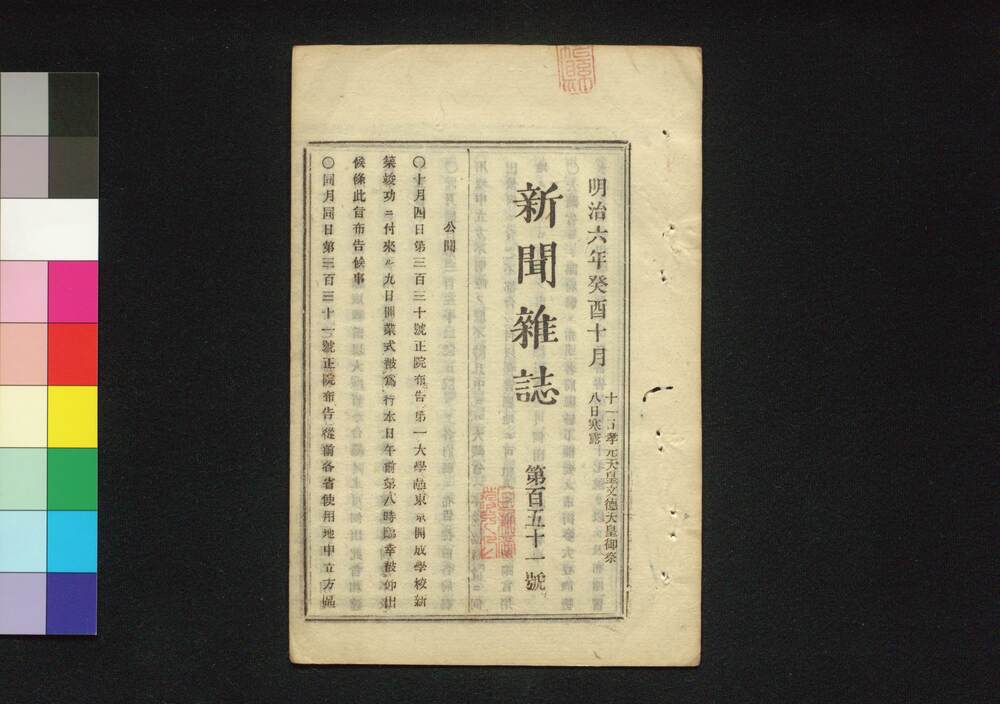 明治六年癸酉十月
十一日孝元天皇文德天皇御祭
八日寒露
新聞雜誌
第百五十一號
公聞
〇十月四日第三百三十號正院布告第一大學區東京開成學校新
築竣功ニ付來ル九日開業式被爲行本日午前第八時臨幸被仰出
候條此旨布告候事
〇同月同日第三百三十一號正院布告從前各省使用地申立方區